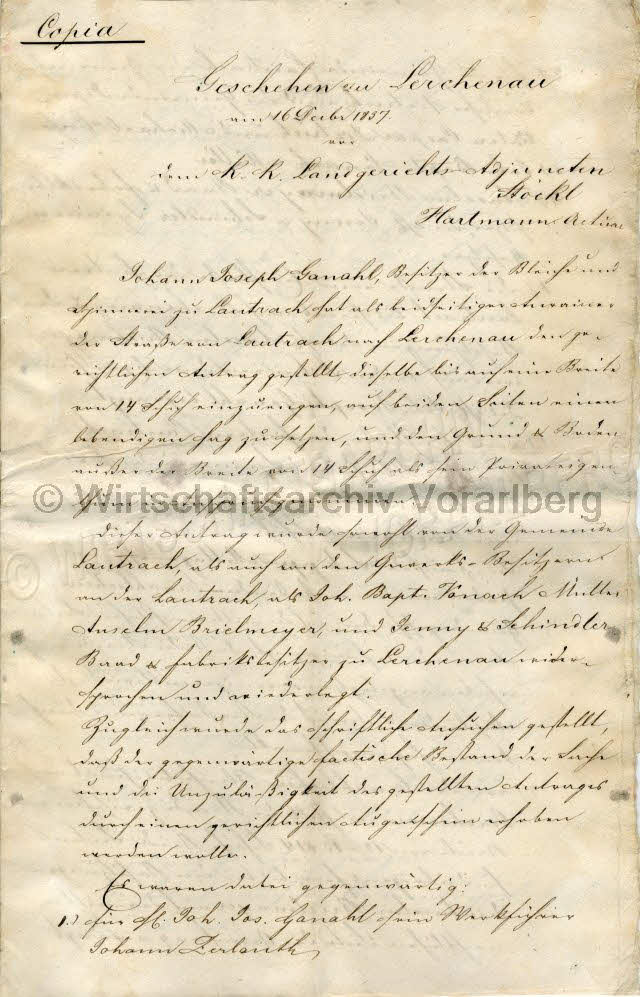 Copia
Geschehen zu Lerchenau
am 16 Decbr 1837.
vor
dem K. K. Landgerichts-Adjuncten
Stöckl
Hartmann Actuar
Johann Joseph Ganahl, Besitzer der Bleiche und
Spinnerei zu Lautrach hat als beidseitiger Anrainer
der Straße von Lautrach nach Lerchenau den ge-
richtlichen Antrag gestellt, dieselbe bis auf eine Breite
von 14 Schuh einzuengen, auf beiden Seiten einen
lebendigen Hag zu setzen, und den Grund & Boden
außer der Breite von 14 Schuh als sein Privateigen-
thum
© Wirtschaftsarchiv Vorarlberg
Dieser Antrag wurde sowohl von der Gemeinde
Lautrach, als auch von den Gewerks-Besitzern
an der Lautrach, als Joh. Bapt. Fönach Müller
Anselm Brielmeyer, und Jenny & Schindler
Baad & Fabriksbesitzer zu Lerchenau wider-
sprochen und wiederlegt.
Zugleich wurde das schriftliche Ansuchen gestellt,
daß der gegenwärtige factische Bestand der Sache
und die Unzuläßigkeit des gestellten Antrages
durch einen gerichtlichen Augenschein erhoben
werden wolle.
Es waren dabei gegenwärtig:
1.) für H. Joh. Jos. Ganahl sein Werkführer
Johann Zerlauth